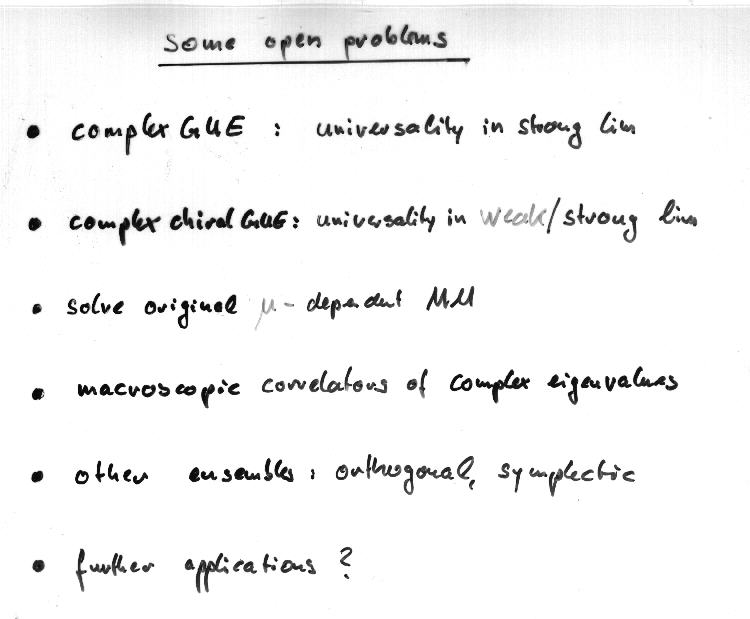 Some open problems
• complex GUE : universality in strong lim
• complex chiral GUE : universality in weak/strong lim
• solve original μ-dependent MM
• macroscopic correlators of complex eigenvalues
• other ensembles : orthogonal, symplectic
• further applications ?